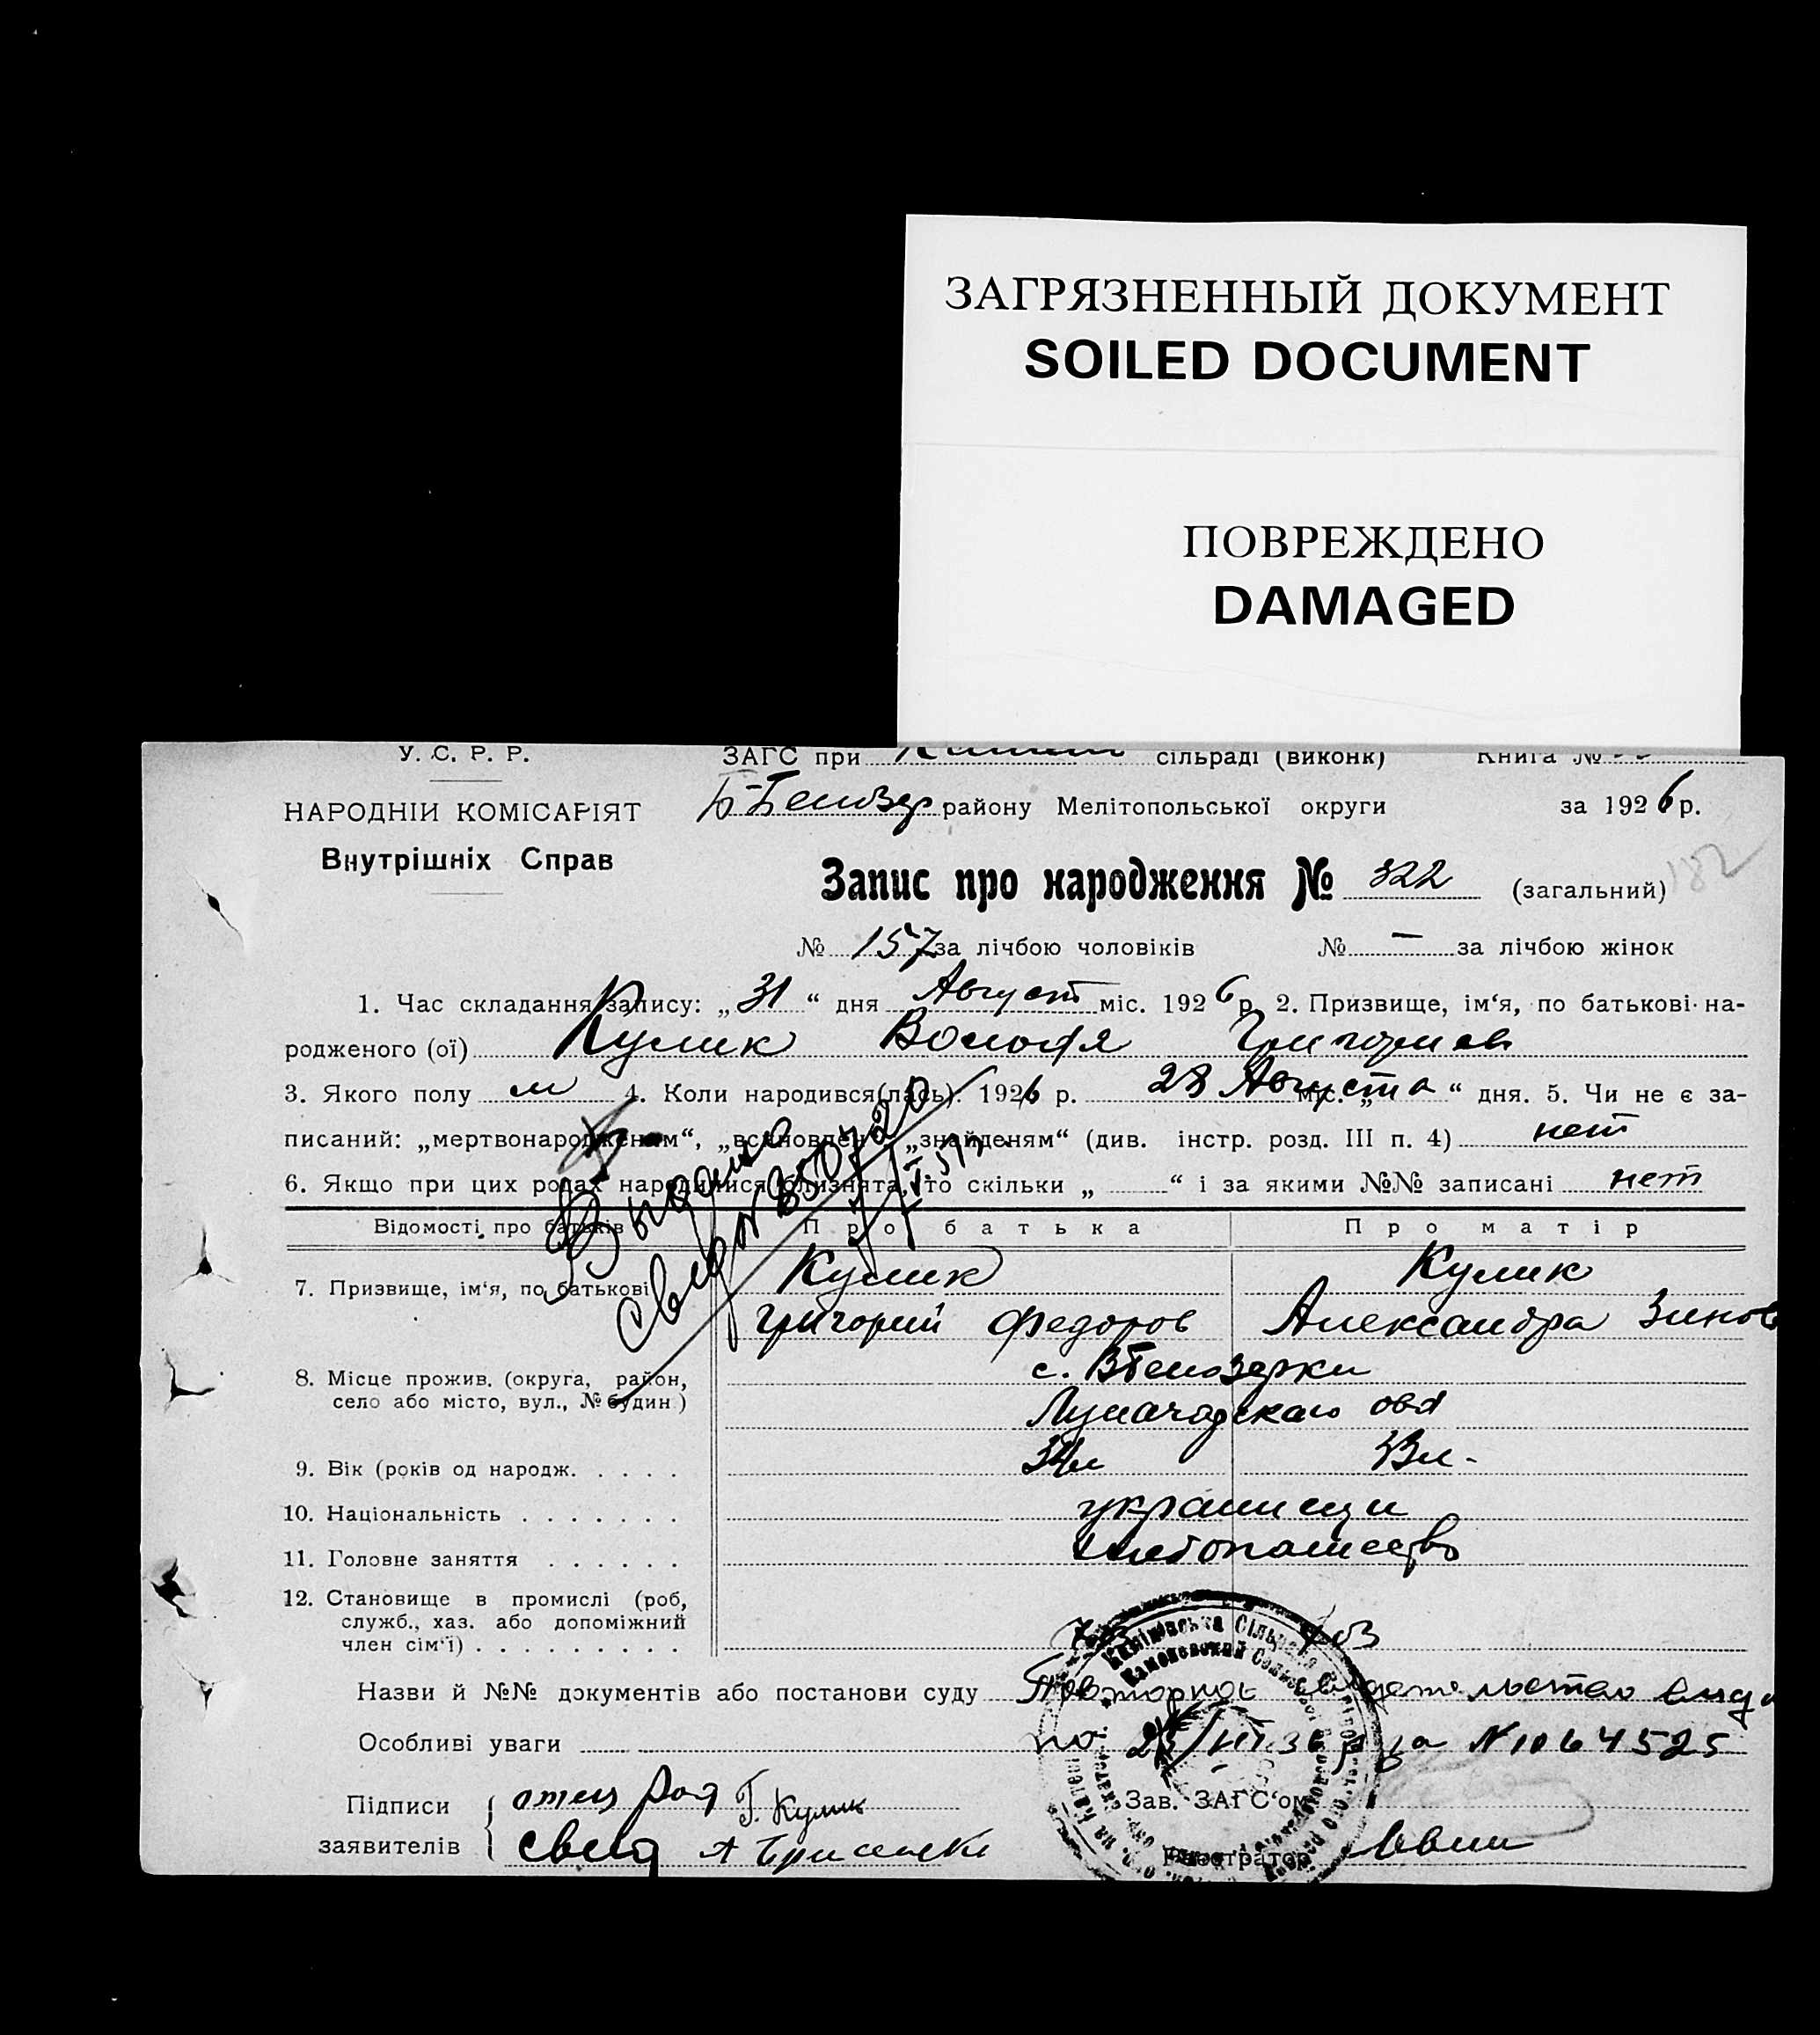 ЗАГРЯЗНЕННЫЙ ДОКУМЕНТ
SOILED DOCUMENT
ПОВРЕЖДЕНО
DAMAGED
У. С. Р. Р.
ЗАГС при сільраді (виконк) Книга №
Б-Белозер району Мелітопольської округи за 1926 р.
НАРОДНІЙ КОМІСАРІЯТ
Внутрішніх Справ
Запис про народження № 322 (загальний) 182
№ 157 за лічбою чоловіків № — за лічбою жінок
1. Час складання запису: „31“ дня Август міс. 1926 р. 2. Призвище, ім‘я, по батькові на-
родженого (ої) Кулик Володя Григориев
3. Якого полу м 4. Коли народився(лась). 1926 р. 28 Августа міс. „ “ дня. 5. Чи не є за-
писаний: „мертвонародженям“, „встановлен „знайденям“ (див. інстр. розд. III п. 4) нет
6. Якщо при цих родах народилися близнята, то скільки „ “ і за якими №№ записані нет
Выдано
свид №
Відомості про батьків Про батька Про матір
7. Призвище, ім‘я, по батькові Кулик Кулик
Григорий Федоров Александра Зинов
8. Місце прожив. (округа, район,
село або місто, вул., № будин) с. Белозерки
9. Вік (років од народж. . . . . 34л 33л -
10. Національність . . . . . . . украинцы
11. Головне заняття . . . . . . хлебопашество
12. Становище в промислі (роб,
служб., хаз. або допоміжний
член сім‘ї) . . . . . . . . . хоз хоз
Назви й №№ документів або постанови суду Повторное свидетельство выда
Особливі уваги но 36 за № 1064525
Підписи
заявителів
отец Г. Кулик
свид А
Зав. ЗАГС‘ом
Реєстратор